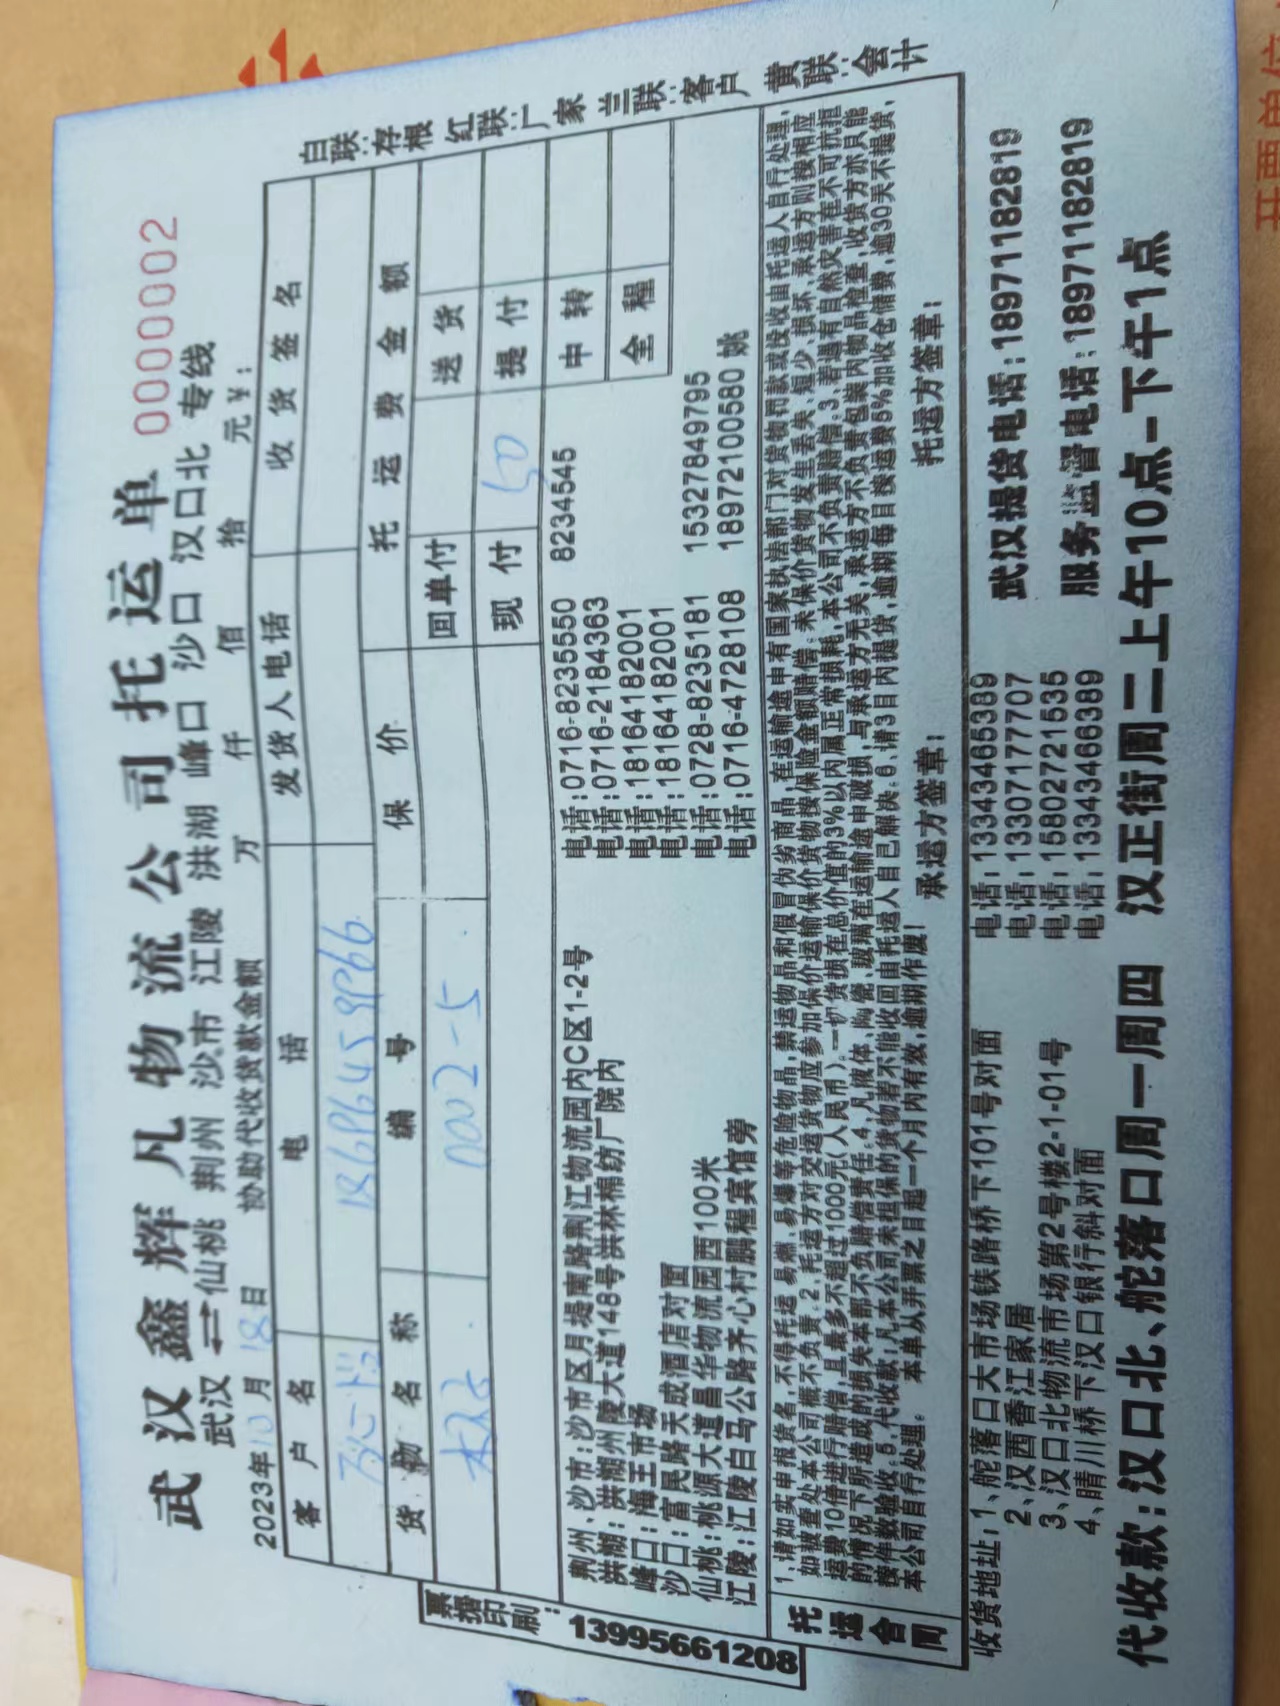 武汉鑫辉凡物流公司托运单
0000002
武汉⇌仙桃 荆州 沙市 江陵 洪湖 峰口 沙口 汉口北 专线
2023年10月18日 协助代收货款金额 万 仟 佰 拾 元¥:
客户名 电话 发货人电话 收货签名
货物名称 编号 保价 托运费金额
0002-5 回单付 送货
现付 50 提付
中转
全程
荆州、沙市:沙市区月堤南路荆江物流园内C区1-2号 电话:0716-8235550 8234545
洪湖:洪湖州陵大道148号洪林棉纺厂院内 电话:0716-2184363
峰口:海王市场 电话:18164182001
沙口:富民路天成酒店对面 电话:18164182001
仙桃:桃源大道昌华物流园西100米 电话:0728-8235181 15327849795
江陵:江陵白马公路齐心村鹏程宾馆旁 电话:0716-4728108 18972100580 姚
托运合同
1、请如实申报货名,不得托运易燃、易爆等危险物品,禁运物品和假冒伪劣商品,在运输途中有国家执法部门对货物罚款或没收由托运人自行处理,
如被查处本公司概不负责。2、托运方对交运货物应参加保价运输保价货物按保险金额赔偿。未保价货物发生丢失、短少、损坏、承运方则按相应
运费10倍进行赔偿,且最多不超过1000元(人民币)。一切货损在总价值的3%以内属正常损耗,本公司不负责赔偿。3、若遇有自然灾害在不可抗拒
的情况下所造成的损失本部不负赔偿责任。4、凡液体、陶瓷、玻璃在运输途中破损,与承运方无关,承运方不负责包装内物品检查,收货方亦只能
按件数验收。5、代收款:凡本公司未担保的货物若不能收回由托运人自己解决。6、请3日内提货,逾期每日按运费5%加收仓储费,逾30天不提货,
本公司自行处理。 本单从开票之日起一个月内有效,逾期作废!
承运方签章: 托运方签章:
收货地址:1、舵落口大市场铁路桥下101号对面 电话:13343465389
2、汉西香江家居 电话:13307177707
3、汉口北物流市场第2号楼2-1-01号 电话:15802721535
4、晴川桥下汉口银行斜对面 电话:13343466389
武汉提货电话:18971182819
服务监督电话:18971182819
代收款:汉口北、舵落口周一周四 汉正街周二上午10点-下午1点
票据印刷:13995661208
白联:存根 红联:厂家 兰联:客户 黄联:会计